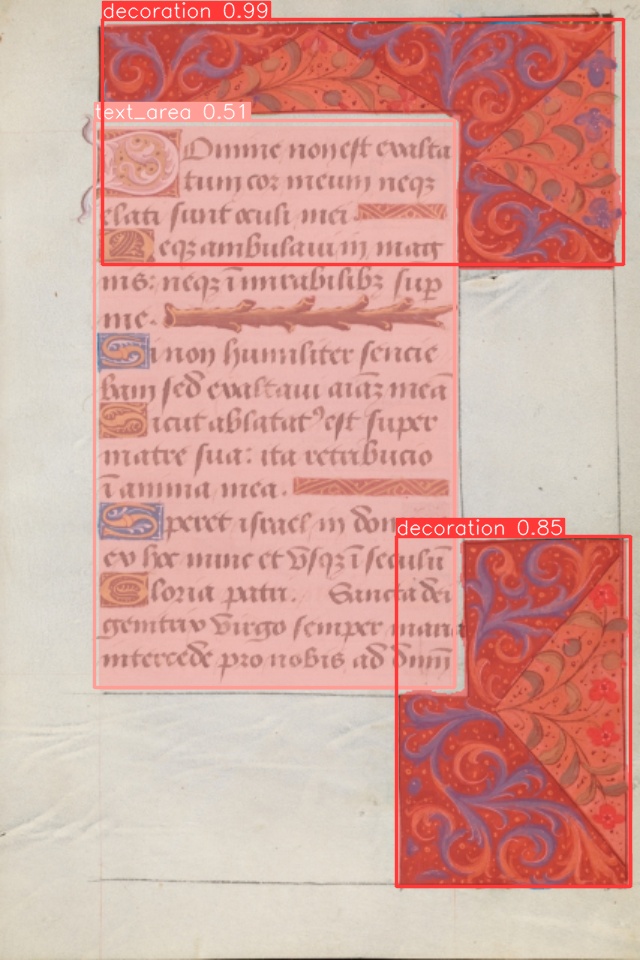 decoration 0.99
text_area 0.51
Domine non est exalta
tum cor meum neqȝ
elati sunt oculi mei
Neqȝ ambulaui in mag
nis: neqȝ ī mirabilibȝ sup
me.
Si non humiliter sencie
bam sed exaltaui aīaȝ meā
Sicut ablatatꝰ est super
matre sua: ita retribucio
ī anima mea.
decoration 0.85
Speret israel in dom
ex hoc nunc et vsqȝ ī seculū
Gloria patri. Sancta dei
genitrix virgo semper maria
intercede pro nobis ad dnm̄